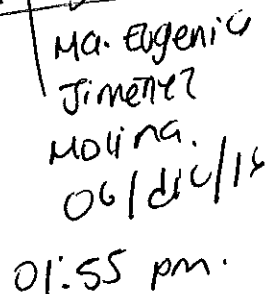 Ma. Eugenia
Jimenez
Molina.
06/dic/18
01:55 pm.